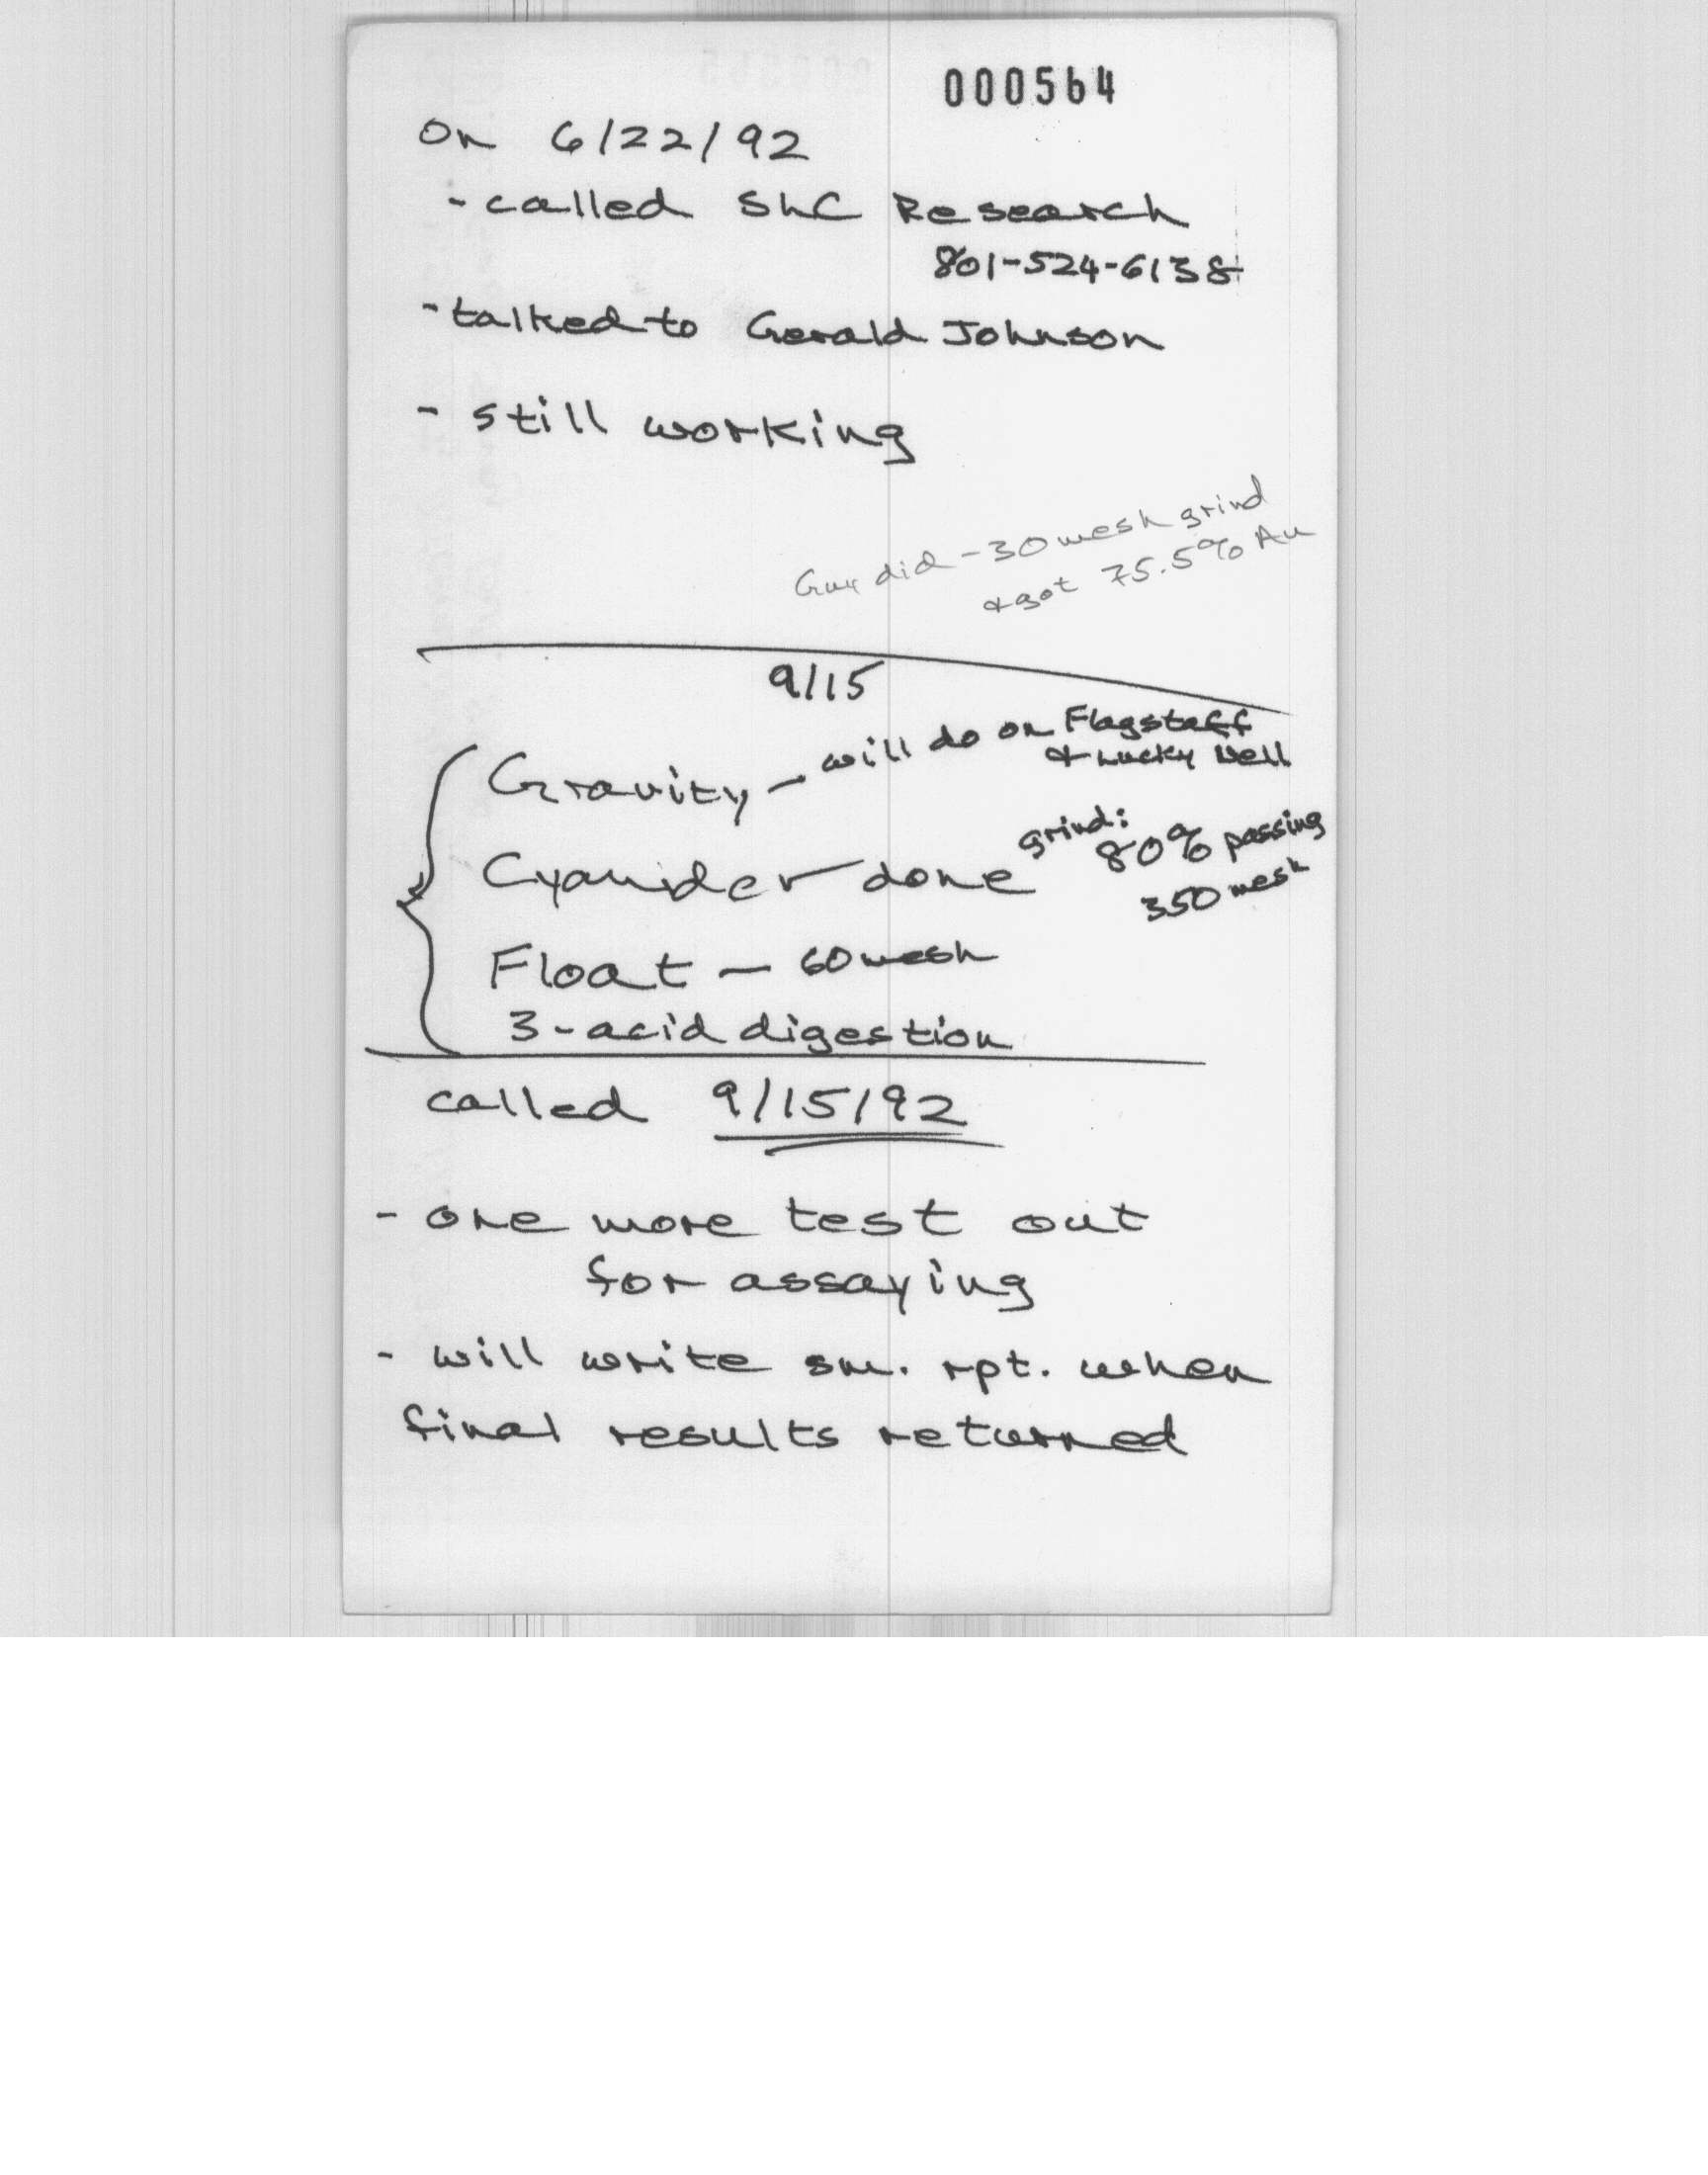 000564
On 6/22/92
- called SLC Research
801-524-6138
- talked to Gerald Johnson
- still working
Guy did -30 mesh grind
& got 75.5% Au
9/15
Gravity - will do on Flagstaff
& Lucky Nell
grind:
80% passing
350 mesh
done
Float - 60 mesh
3-acid digestion
called 9/15/92
- one more test out
for assaying
- will write sm. rpt. when
final results returned